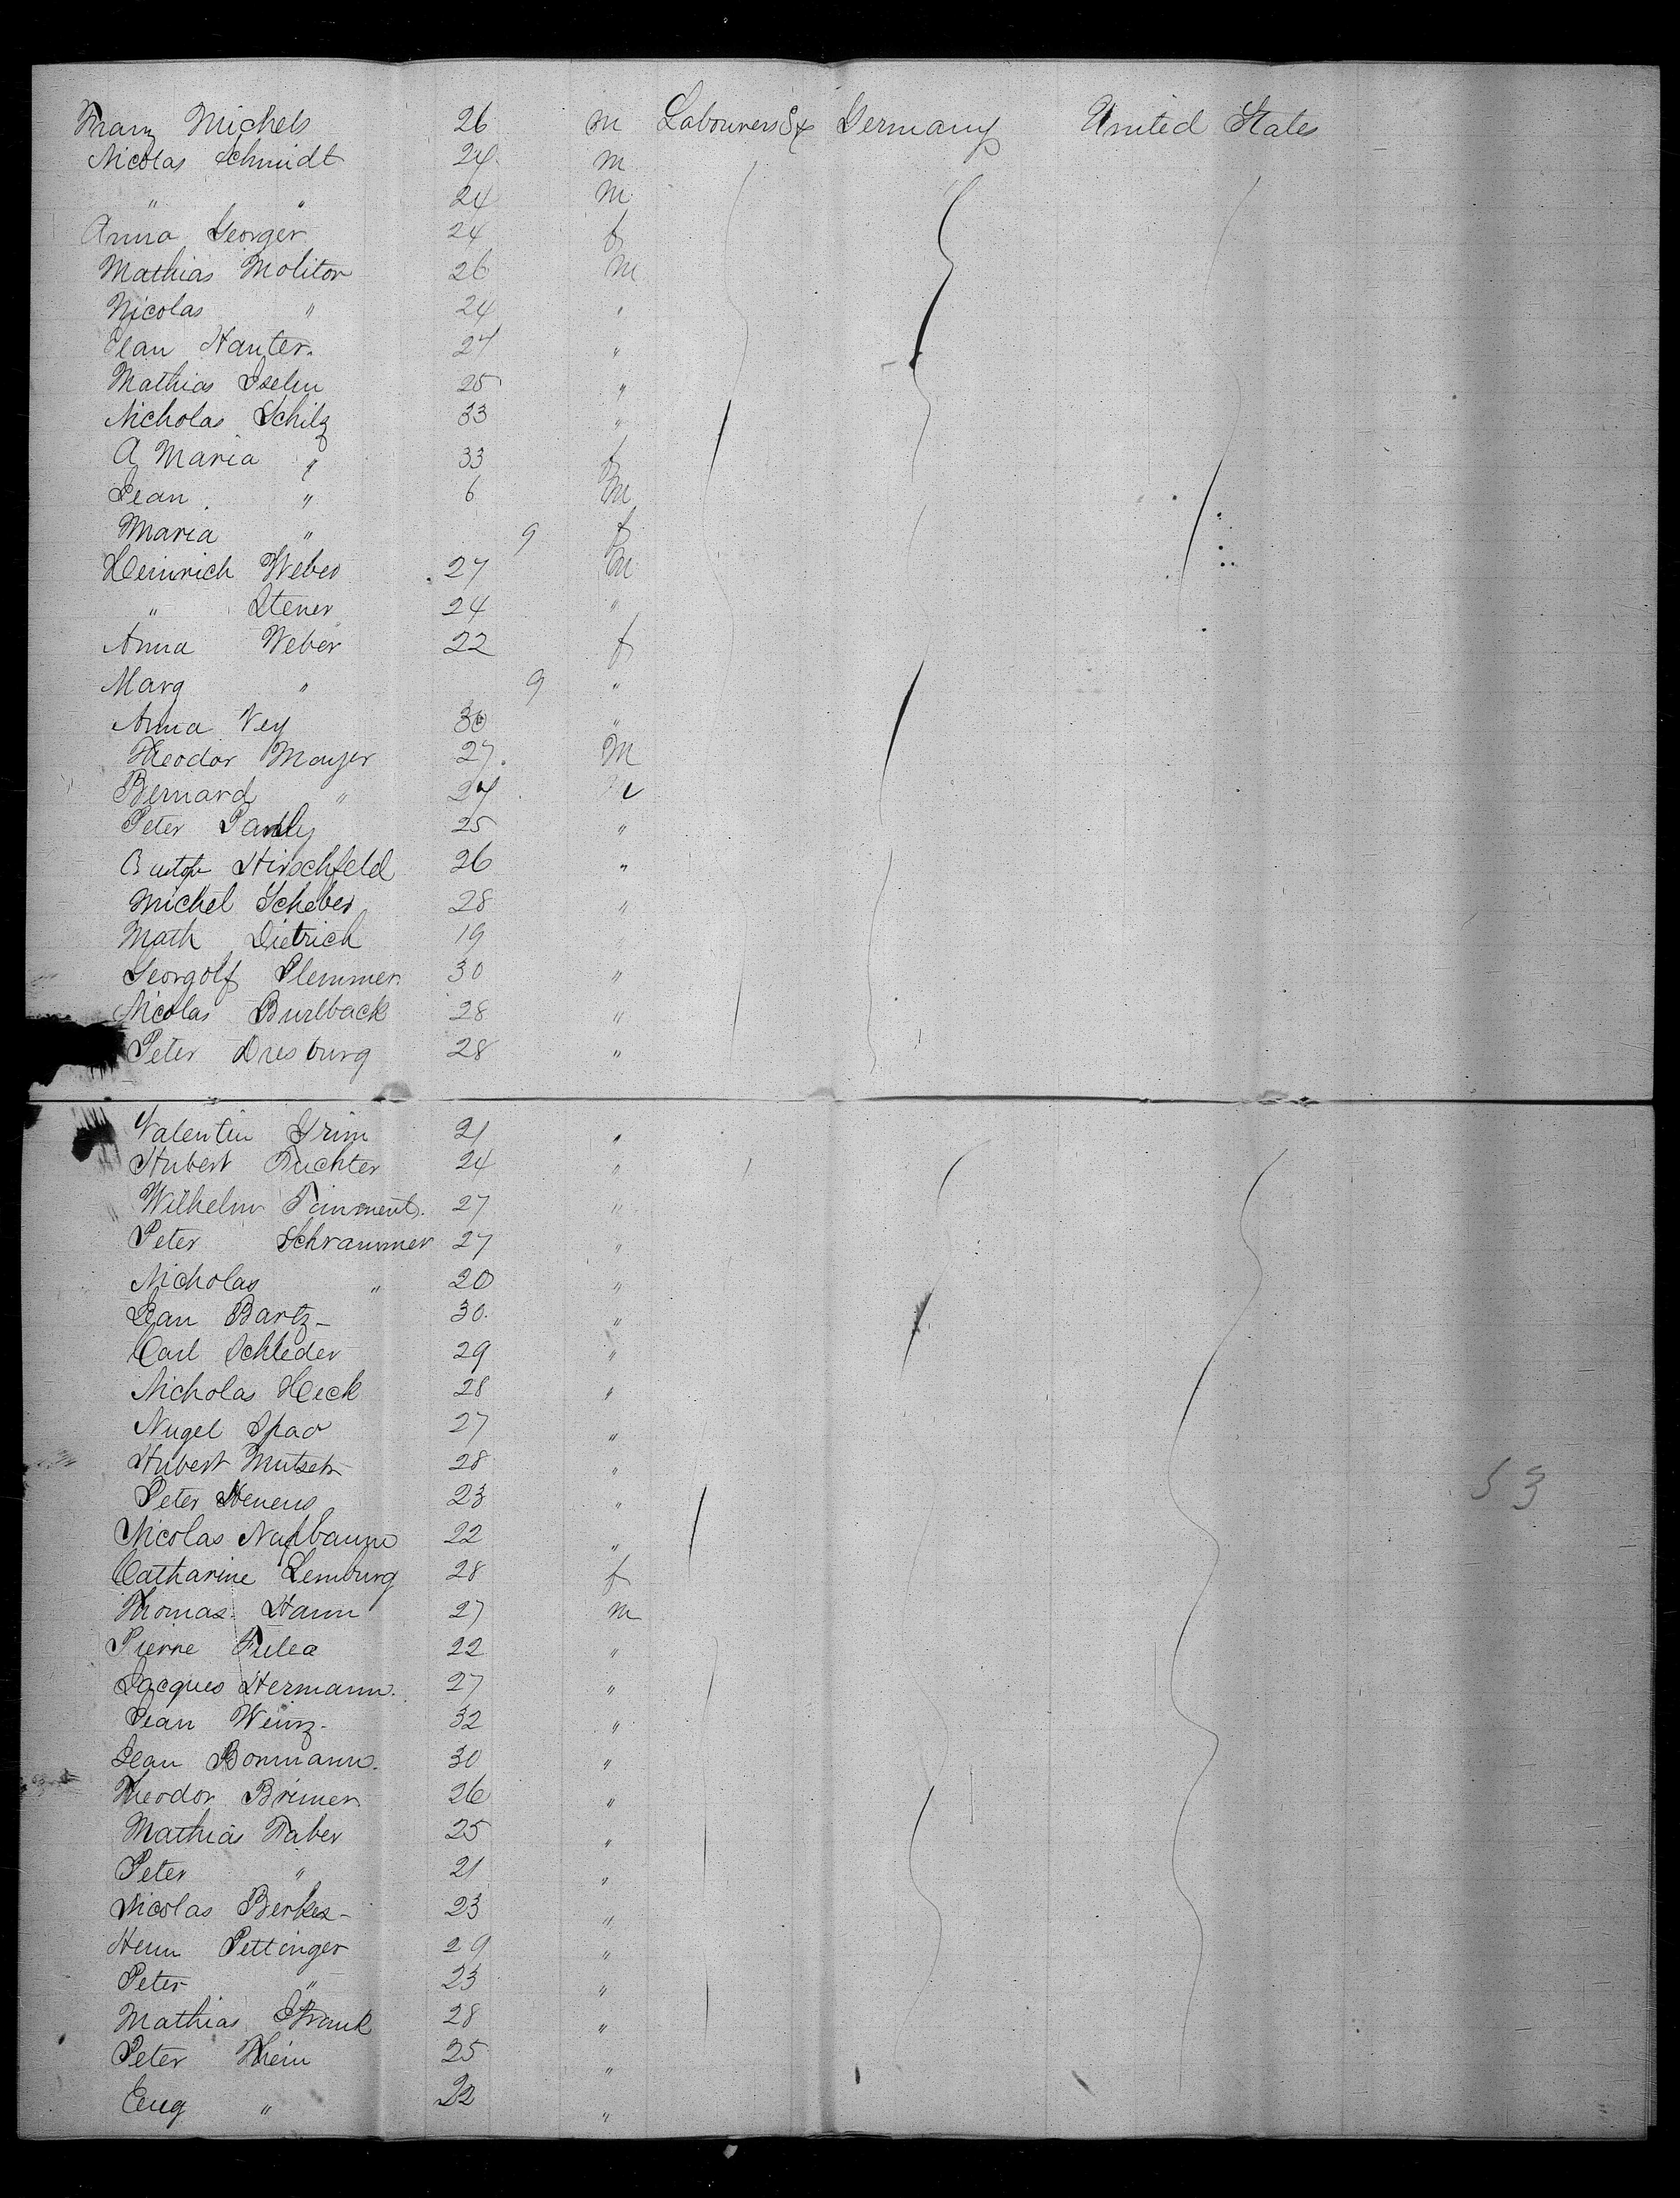 Franz Michels 26 m Labourers &c Germany United States
Nicolas Schmidt 24 m
" " 24 m
Anna Georger 24 f
Mathias Molitor 26 m
Nicolas " 24 "
Jean Hauter. 27 "
Mathias 25 "
Nicholas Schilz 33 "
A Maria " 33 f
Jean " 6 m
Maria " 9 f
Heinrich Weber 27 m
" Stener 24 "
Anna Weber 22 f
Marg " 9 "
Anna Vey 30 "
Theodor Mayer 27. m
Bernard " 27
Peter Pauly 25 "
Hirschfeld 26 "
Michel Scheber 28 "
Math Dietrich 19 "
Georgolf Plemmer 30 "
Nicolas Burlback 28 "
Peter Dresburg 28 "
Valentin Grim 21 "
Hubert Richter 24 "
Wilhelm 27 "
Peter Schrammer 27 "
Nicholas " 20 "
Jean Bartz - 30. "
Carl Schleder 29 "
Nicholas Heck 28 "
Nugel Spao 27 "
Hubert Mutsch 28 "
Peter 23 "
Nicolas Nußbaum 22 "
Catharine Lemburg 28 f
Thomas Hamm 27 m
Pierre Fulea 22 "
Jacques Hermann. 27 "
Jean Weinz. 32 "
Jean Bonmann. 30 "
Theodor Brimer 26 "
Mathias Faber 25 "
Peter " 21 "
Nicolas Berkes - 23 "
Henn Pettinger 29 "
Peter " 23 "
Mathias Frank 28 "
Peter Thein 25 "
Eug " 22 "
53